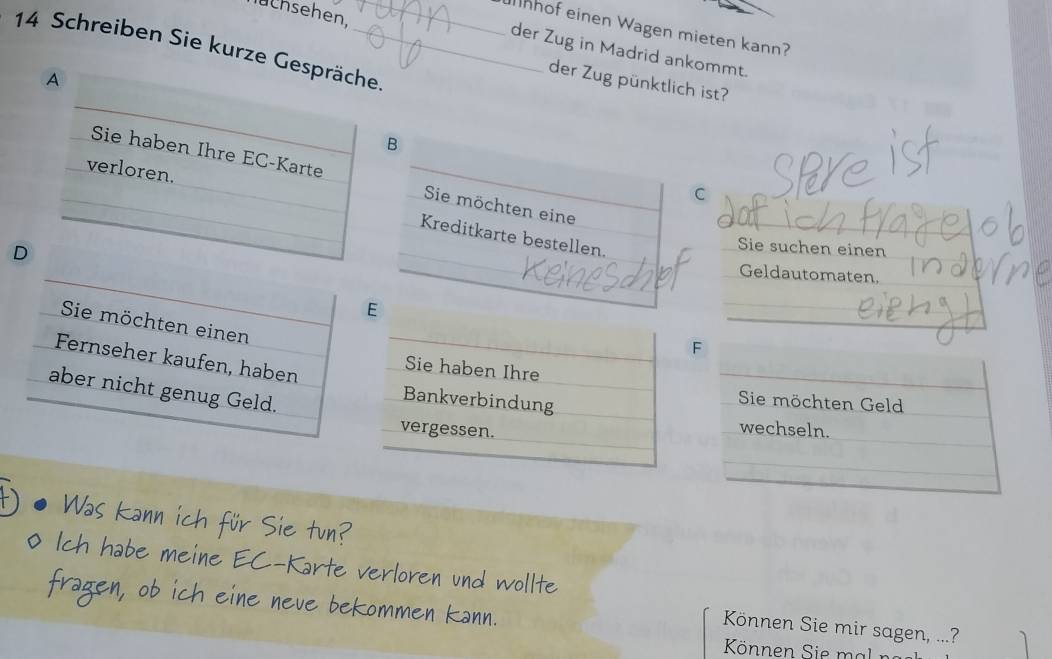 einen Wagen mieten kann?
der Zug in Madrid ankommt.
der Zug pünktlich ist?
wann
ob
14 Schreiben Sie kurze Gespräche.
A
Sie haben Ihre EC-Karte
verloren.
B
Sie möchten eine
Kreditkarte bestellen.
C
ist
ich frage ob
Sie suchen einen
Geldautomaten.
D
Sie möchten einen
Fernseher kaufen, haben
aber nicht genug Geld.
E
Sie haben Ihre
Bankverbindung
vergessen.
F
Sie möchten Geld
wechseln.
• Was kann ich für Sie tun?
o Ich habe meine EC-Karte verloren und wollte
fragen, ob ich eine neue bekommen kann.
Können Sie mir sagen, ...?
Können Sie mal